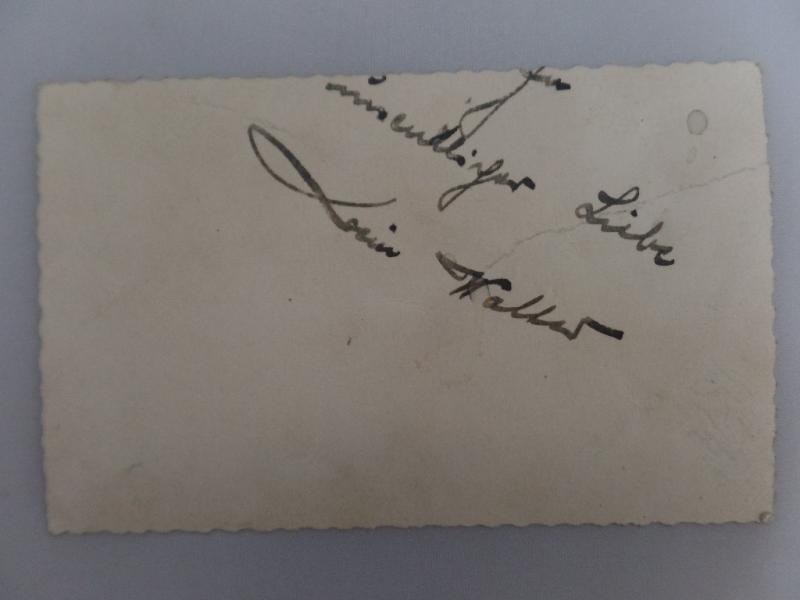 unendlicher Liebe
Dein Walter